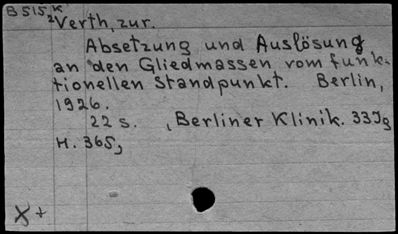 B 515 K
2 Verth, zur.
Absetzung und Auslösung
an den Gliedmassen vom funk-
tionellen Standpunkt. Berlin,
1926.
22 s. (Berliner Klinik. 33Jg
H. 365)
X +